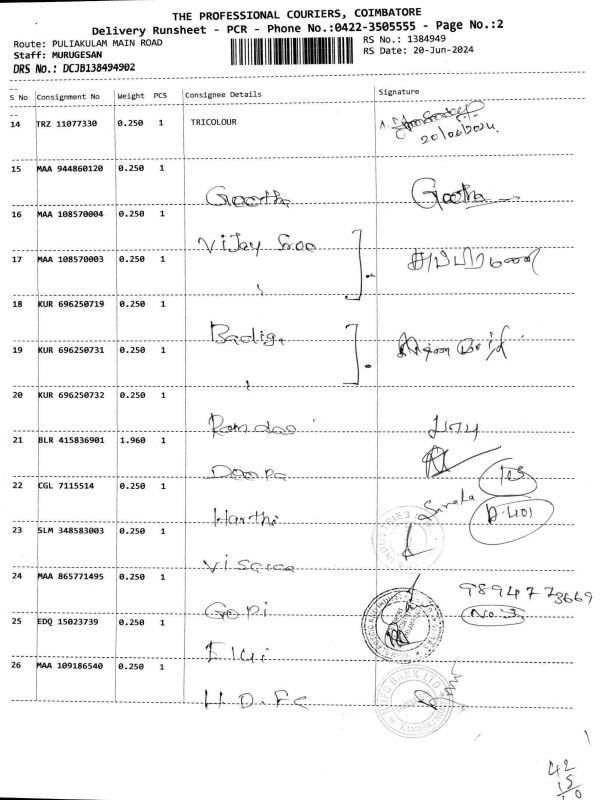 THE PROFESSIONAL COURIERS, COIMBATORE
Delivery Runsheet - PCR - Phone No.:0422-3505555 - Page No.:2
Route: PULIAKULAM MAIN ROAD
RS No.: 1384949
Staff: MURUGESAN
RS Date: 20-Jun-2024
DRS No.: DCJB138494902
S No Consignment No Weight PCS Consignee Details Signature
14 TRZ 11077330 0.250 1 TRICOLOUR
20/06/2024
15 MAA 944860120 0.250 1
Geetha Geetha
16 MAA 108570004 0.250 1
Vijay Sree
17 MAA 108570003 0.250 1
18 KUR 696250719 0.250 1
Badiga
19 KUR 696250731 0.250 1
20 KUR 696250732 0.250 1
Ramdas
21 BLR 415836901 1.960 1
Deepa
22 CGL 7115514 0.250 1
Harthi Sarala D-401
23 SLM 348583003 0.250 1
24 MAA 865771495 0.250 1
Gopi No:3
25 EDQ 15023739 0.250 1
Elgi
26 MAA 109186540 0.250 1
H.D.F.C
HDFC BANK LTD
42
15